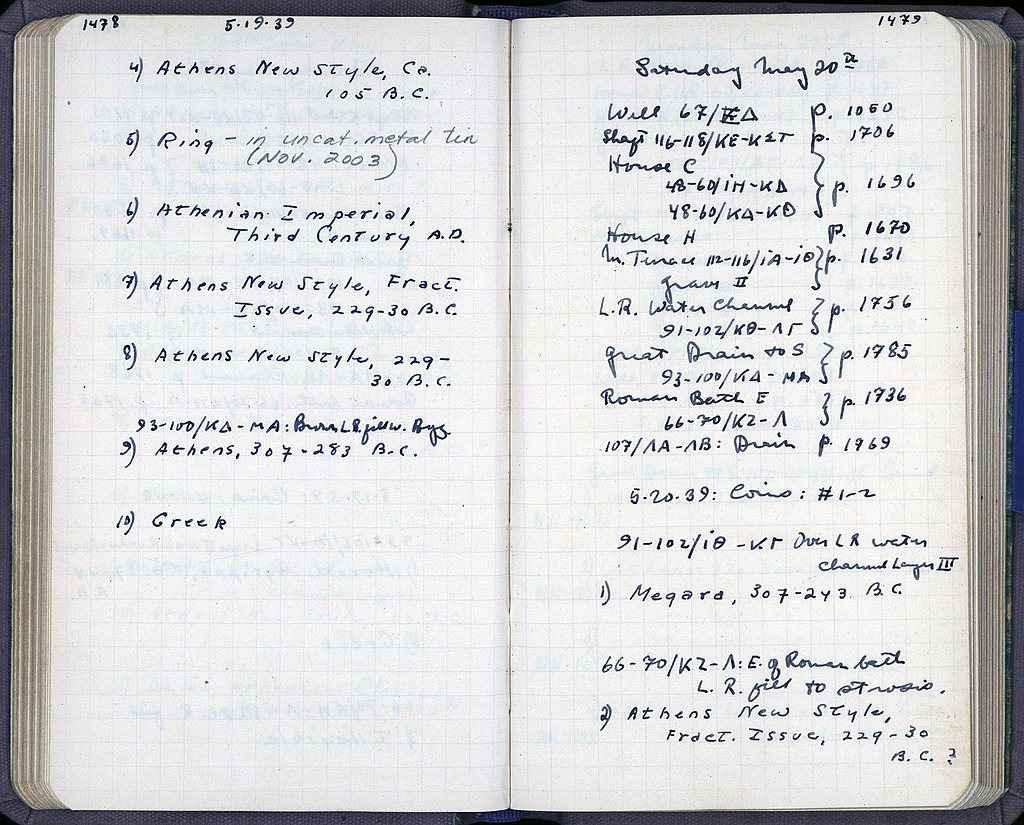 1478 5·19·39
4) Athens New Style, Ca.
105 B.C.
5) Ring – in uncat. metal tin
(NOV. 2003)
6) Athenian Imperial,
Third Century A.D.
7) Athens New Style, Fract.
Issue, 229-30 B.C.
8) Athens New Style, 229-
30 B.C.
93-100/ΚΔ-ΜΑ: Brown L.R. fill w. Byz
9) Athens, 307-283 B.C.
10) Greek
1479
Saturday May 20th
Well 67/ΕΔ p. 1050
Shaft 116-118/ΚΕ-ΚΣΤ p. 1706
House C
48-60/ΙΗ-ΚΔ } p. 1696
48-60/ΚΔ-ΚΘ
House H p. 1670
M. Terrace 112-116/ΙΑ-ΙΘ } p. 1631
grave II
L.R. Water Channel } p. 1756
91-102/ΚΘ-ΛΓ
Great Drain to S } p. 1785
93-100/ΚΔ-ΜΑ
Roman Bath E } p. 1736
66-70/ΚΖ-Λ
107/ΛΑ-ΛΒ: Drain p. 1769
5·20·39: Coins: #1-2
91-102/ΙΘ-ΚΓ Over L R water
channel Layer III
1) Megara, 307-243 B.C.
66-70/ΚΖ-Λ: E. of Roman bath
L. R. fill to strosis.
2) Athens New Style,
Fract. Issue, 229-30
B.C. ?